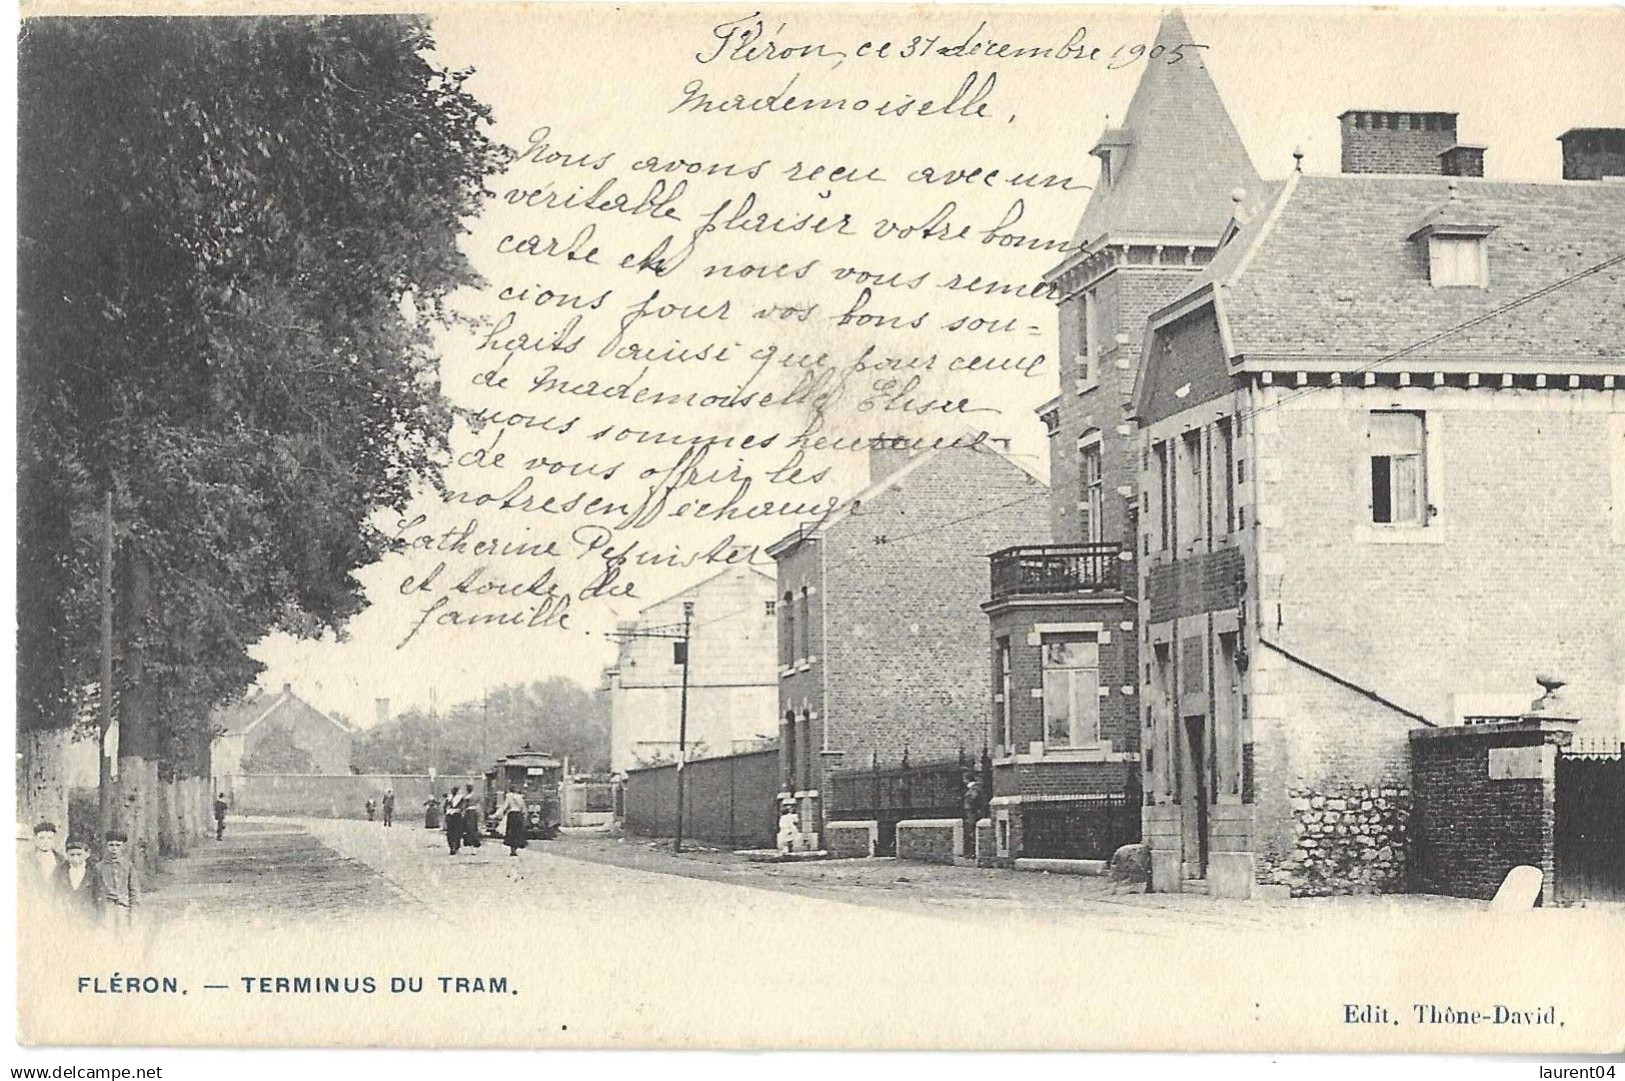 Fléron, ce 31 décembre 1905
Mademoiselle,
Nous avons reçu avec un
véritable plaisir votre bonne
carte et nous vous remer
cions pour vos bons sou-
haits ainsi que pour ceux
de Mademoiselle Elisa
nous sommes heureux
de vous offrir les
notres en échange
Catherine Pepinster
et toute la
famille.
FLÉRON. — TERMINUS DU TRAM.
Edit. Thône-David.
laurent04